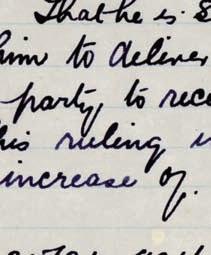 That he is
him to deliver
party, to rece
his ruling
increase of.